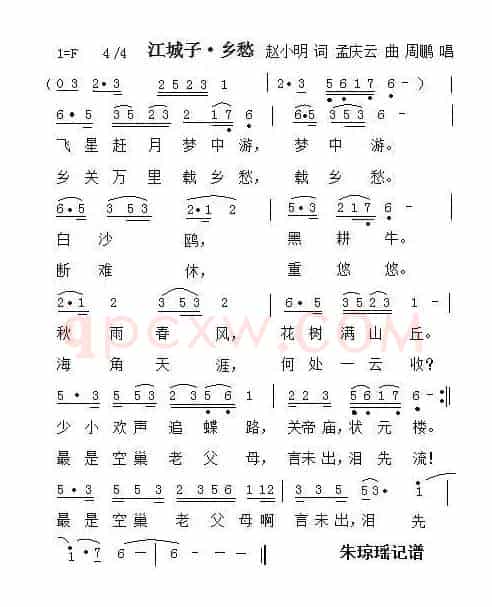 1=F 4/4 江城子·乡愁 赵小明 词 孟庆云 曲 周鹏 唱
(0 3 2·3 2 5 2 3 1 2·3 5 6 1 7 6 - )
6·6 3 5 3 2 3 2 1 7 6 6·5 3 5 2 3 1 -
飞星赶月梦中游，梦中游。
乡关万里载乡愁，载乡愁。
6·5 3 5 3 2·1 2 5·3 2 1 7 6 -
白沙鸥，黑耕牛。
断难休，重悠悠。
2·1 2 3 5 3 5 6·5 3 5 2 3 1 -
秋雨春风，花树满山丘。
海角天涯，何处一云收？
qpcxw.COM
5·3 5 2 1 2 3 5 2·3 5 6 1 7 6 - :||
少小欢声追蝶路，关帝庙，状元楼。
最是空巢老父母，言未出，泪先流！
5·3 5 2 5 3 2 3 5 6 1 1 2 3 3 5 5 3· i
最是空巢老父母啊言未出，泪先
i·7 6 - 6 - - -
朱琼瑶记谱